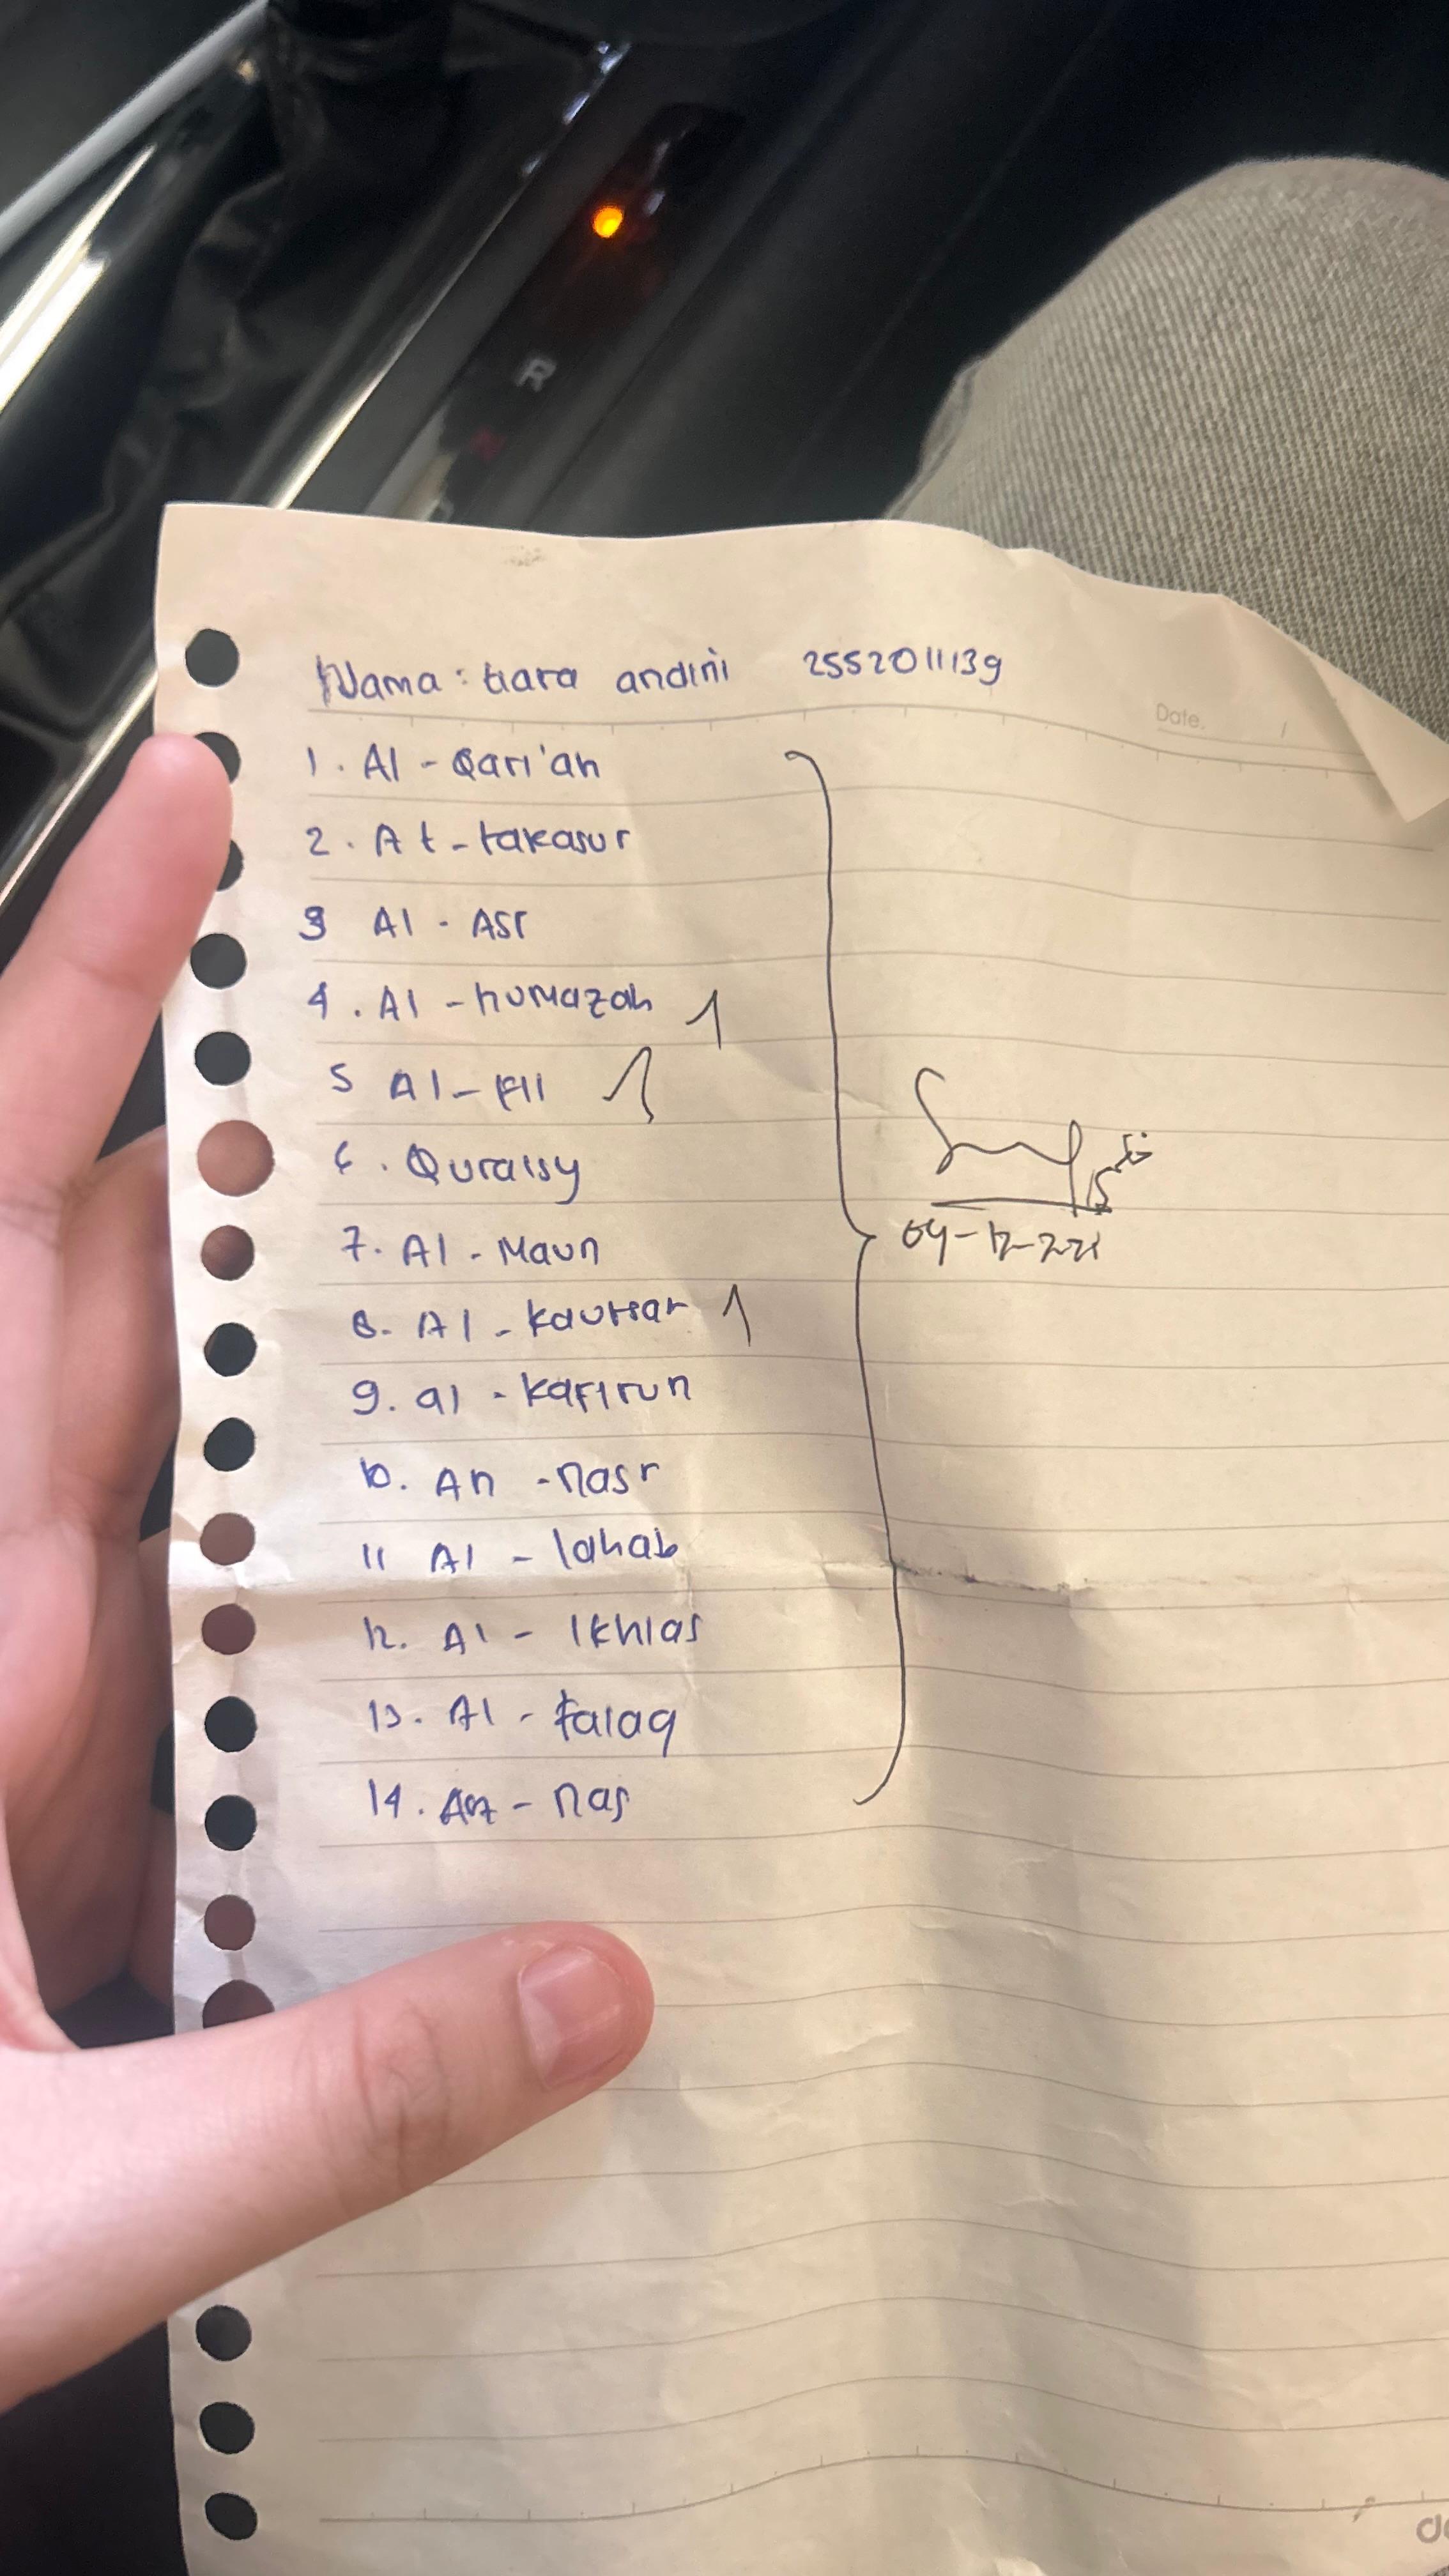 R
N
Nama : tiara andini 2552011139
Date. /
1. Al - Qari'ah
2. At - takasur
3 Al - ASr
4. Al - humazah
5 Al - Fil
6. Quraisy
7. Al - Maun
8. Al - kautsar
9. al - kafirun
10. An - nasr
11 Al - lahab
12. Al - Ikhlas
13. Al - falaq
14. An - nas